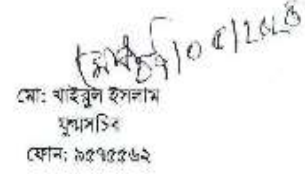 মো: খাইরুল ইসলাম
যুগ্মসচিব
ফোন: ৯৫৭৫৫৬২